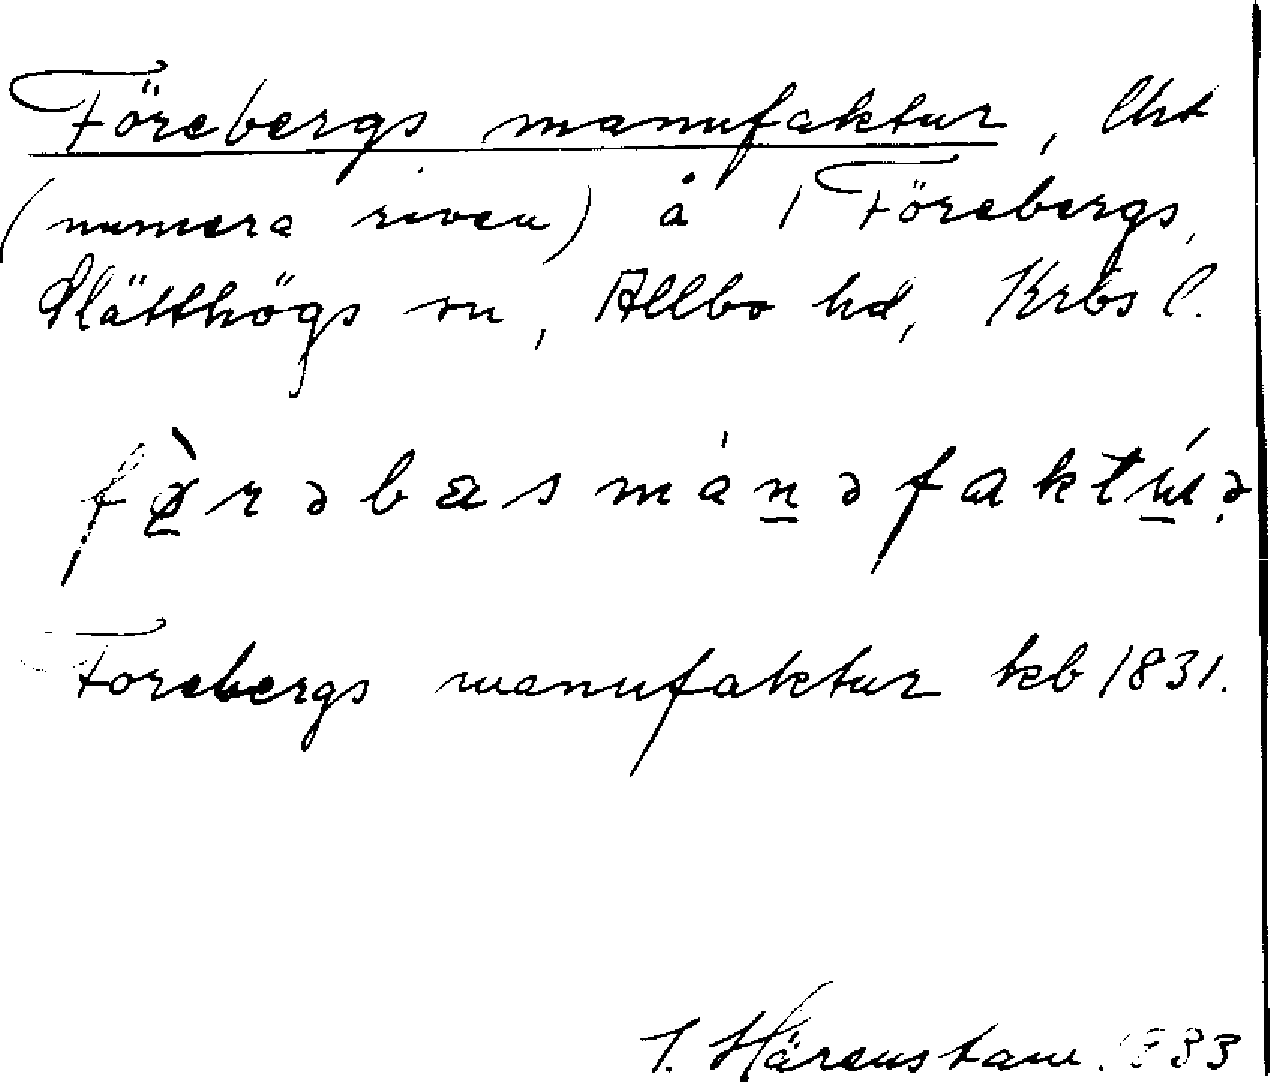 Förebergs manufaktur, lht
(numera riven) å 1 Förebergs,
Slätthögs sn, Allbo hd, Krbs l.
fø̀rəbæsmánəfaktúə
Forebergs manufaktur kb 1831.
J. Härenstam. 1933